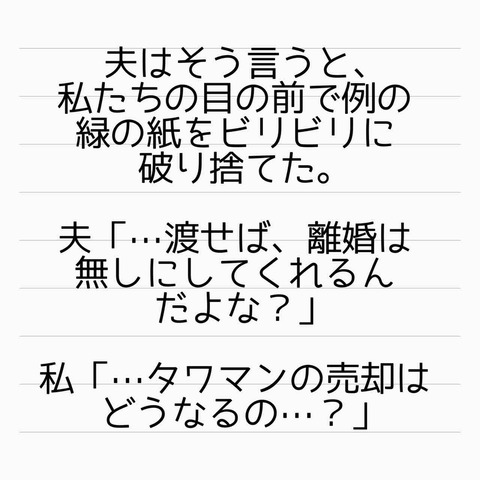 夫はそう言うと、
私たちの目の前で例の
緑の紙をビリビリに
破り捨てた。
夫「…渡せば、離婚は
無しにしてくれるん
だよな？」
私「…タワマンの売却は
どうなるの…？」